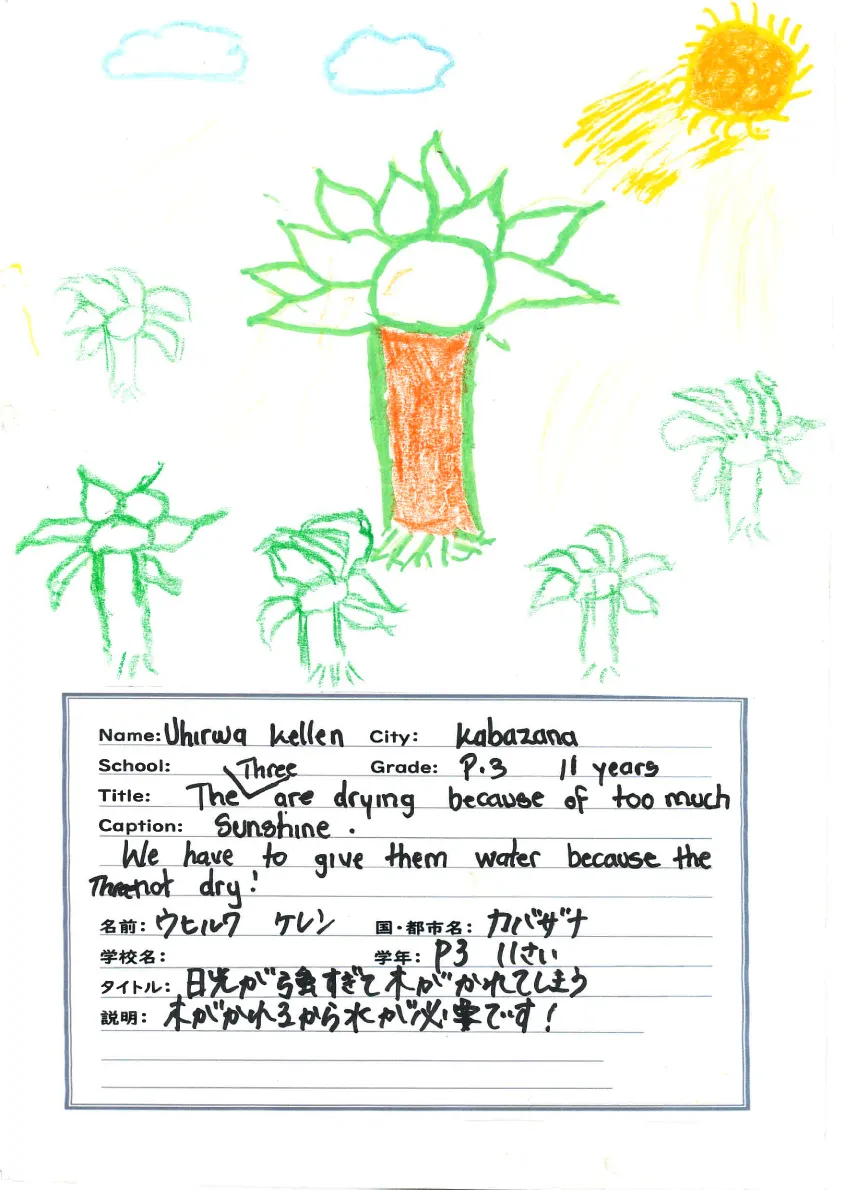 Name: Uhirwa Kellen City: Kabazana
School: Grade: P.3 11 years
Three
Title: The are drying because of too much
Caption: Sunshine.
We have to give them water because the
Three not dry!
名前: ウヒルワ ケレン 国・都市名: カバザナ
学校名: 学年: P3 11さい
タイトル: 日光が強すぎて木がかれてしまう
説明: 木がかれるから水が必要です!